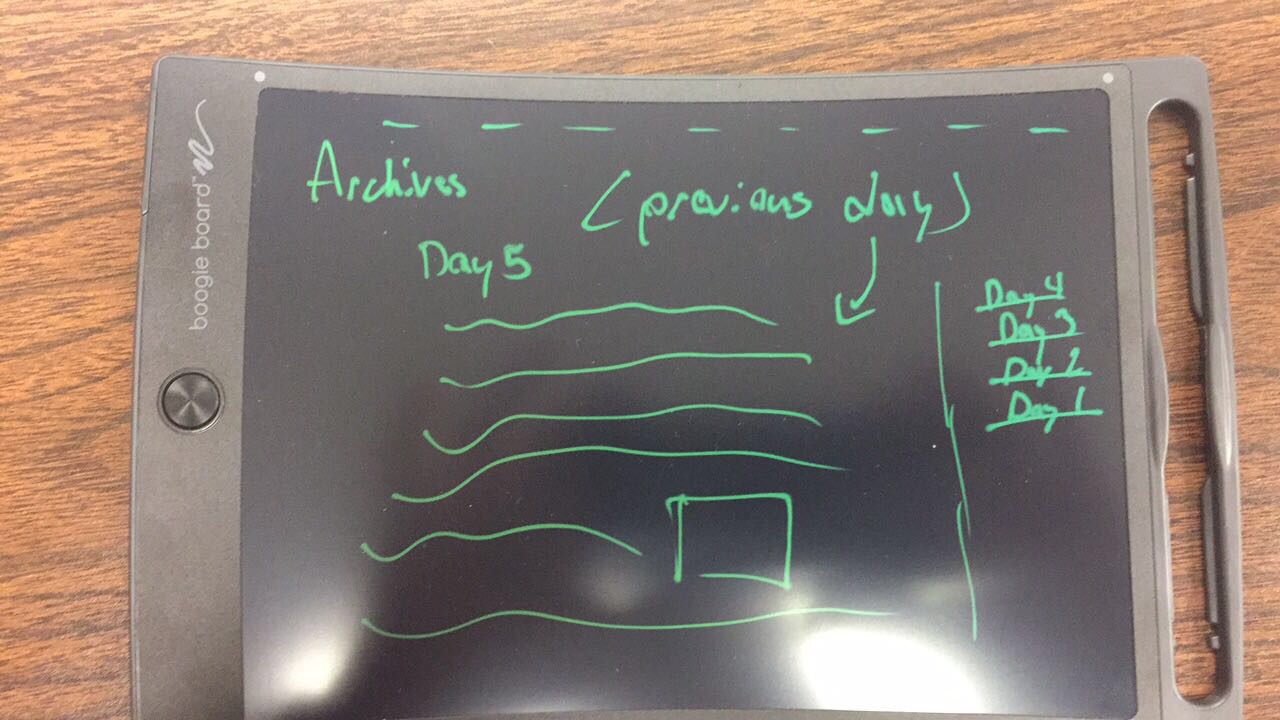 boogie board™
Archives
(previous day)
Day 5
Day 4
Day 3
Day 2
Day 1